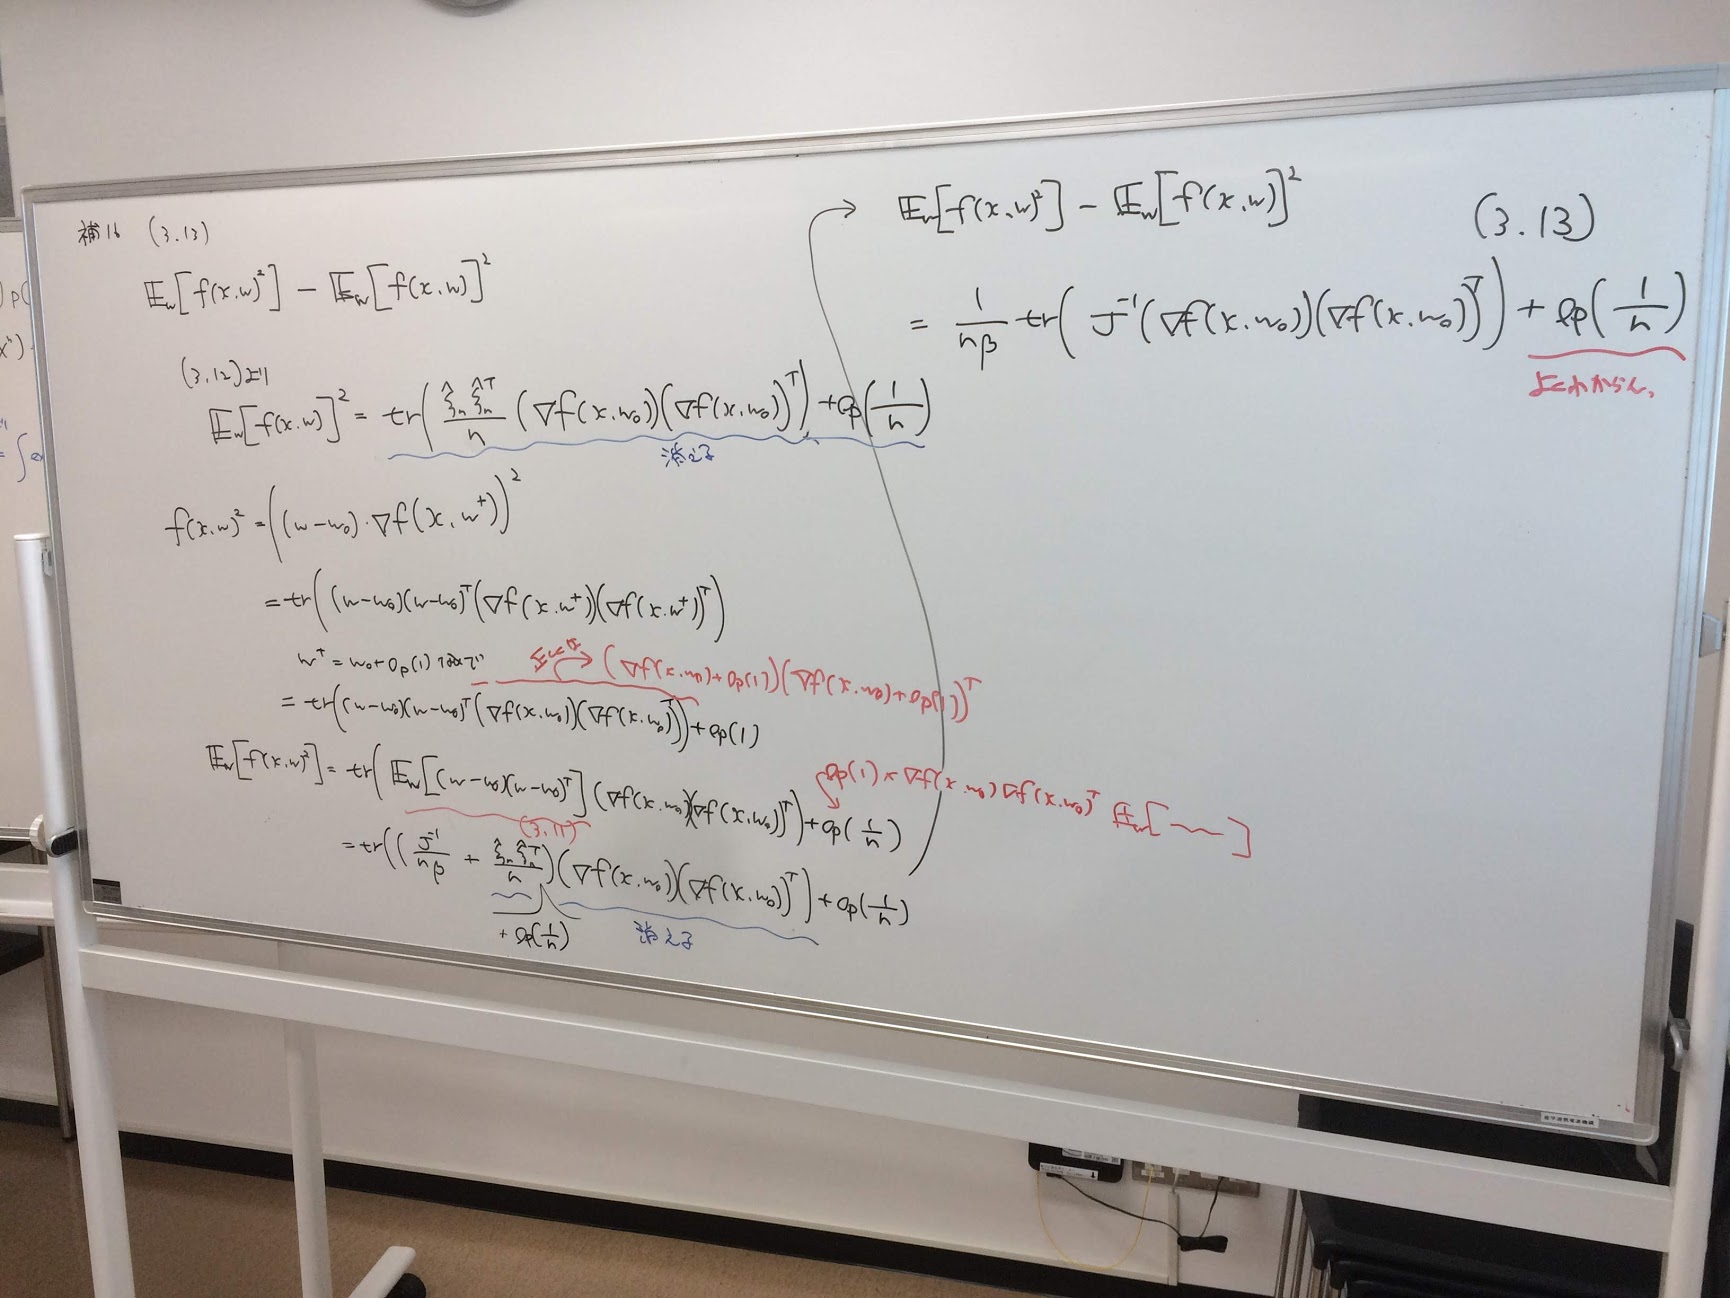 補16 (3.13)
𝔼w[f(x,w)²] − 𝔼w[f(x,w)]²
(3.12)より
𝔼w[f(x,w)]² = tr( ξ̂n ξ̂nᵀ / n (∇f(x,w₀))(∇f(x,w₀))ᵀ ) + op(1/n)
消える
f(x,w)² = ((w−w₀)·∇f(x,w⁺))²
= tr((w−w₀)(w−w₀)ᵀ(∇f(x,w⁺))(∇f(x,w⁺))ᵀ)
w⁺ = w₀ + op(1)
(∇f(x,w₀)+op(1))(∇f(x,w₀)+op(1))ᵀ
= tr((w−w₀)(w−w₀)ᵀ(∇f(x,w₀))(∇f(x,w₀))ᵀ) + op(1)
op(1) × ∇f(x,w₀)∇f(x,w₀)ᵀ 𝔼w[〜]
𝔼w[f(x,w)²] = tr(𝔼w[(w−w₀)(w−w₀)ᵀ](∇f(x,w₀))(∇f(x,w₀))ᵀ) + op(1/n)
(3.11)
= tr((J⁻¹/nβ + ξ̂n ξ̂nᵀ/n)(∇f(x,w₀))(∇f(x,w₀))ᵀ) + op(1/n)
+ op(1/n)
消える
𝔼w[f(x,w)²] − 𝔼w[f(x,w)]² (3.13)
= 1/nβ tr(J⁻¹(∇f(x,w₀))(∇f(x,w₀))ᵀ) + op(1/n)
よくわからん。